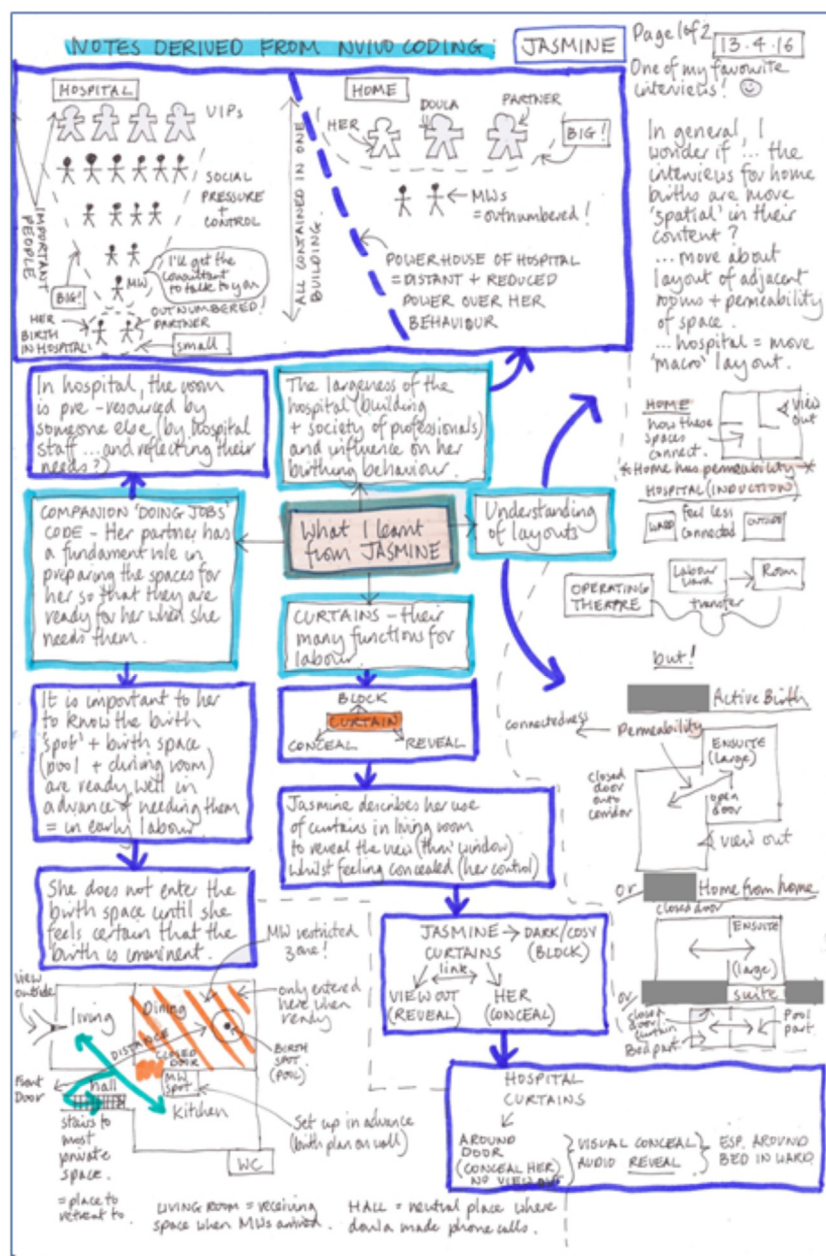 NOTES DERIVED FROM NVIVO CODING.
JASMINE
Page 1 of 2
13.4.16
One of my favourite
interviews!
HOSPITAL
VIPs
SOCIAL
PRESSURE
+
CONTROL
IMPORTANT
PEOPLE
MW
I'll get the
consultant
to talk to you
BIG!
OUTNUMBERED!
HER
PARTNER
BIRTH
IN HOSPITAL
small
ALL CONTAINED IN ONE
BUILDING.
HOME
HER
DOULA
PARTNER
BIG!
MWs
=outnumbered!
POWERHOUSE OF HOSPITAL
= DISTANT + REDUCED
POWER OVER HER
BEHAVIOUR
In general, I
wonder if ... the
interviews for home
births are more
'spatial' in their
content?
... more about
layout of adjacent
rooms + permeability
of space.
... hospital = more
'macro' layout.
HOME
how these
spaces
connect.
VIEW
OUT
*Home has permeability*
HOSPITAL (INDUCTION)
WARD
feel less
connected
OUTSIDE
OPERATING
THEATRE
Labour
ward
Room
transfer
but!
Active Birth
connectedness
Permeability
ENSUITE
(large)
closed
door
onto
corridor
open
door
view out
or
Home from home
closed door
ENSUITE
(large)
or
suite
closed
door
curtain
Bed part
Pool
part
In hospital, the room
is pre-resourced by
someone else (by hospital
staff ... and reflecting their
needs?)
The largeness of the
hospital (building
+ society of professionals)
and influence on her
birthing behaviour.
COMPANION 'DOING JOBS'
CODE - Her partner has
a fundament role in
preparing the spaces for
her so that they are
ready for her when she
needs them.
What I learnt
from JASMINE
Understanding
of layouts
CURTAINS - their
many functions for
labour.
BLOCK
CURTAIN
CONCEAL
REVEAL
It is important to her
to know the birth
'spot' + birth space
(pool + dining room)
are ready well in
advance of needing them
= in early labour.
Jasmine describes her use
of curtains in living room
to reveal the view (thin window)
whilst feeling concealed (her control)
She does not enter the
birth space until she
feels certain that the
birth is imminent.
JASMINE
CURTAINS
DARK/COSY
(BLOCK)
link
VIEW OUT
(REVEAL)
HER
(CONCEAL)
HOSPITAL
CURTAINS
AROUND
DOOR
(CONCEAL HER)
NO VIEW OUT
VISUAL CONCEAL
AUDIO REVEAL
ESP. AROUND
BED IN WARD.
MW restricted
zone!
view
outside
living
Dining
only entered
here when
ready
DISTANCE
CLOSED
DOOR
BIRTH
SPOT.
(POOL)
Front
Door
hall
MW
SPOT
Kitchen
Set up in advance
(birth plan on wall)
WC
stairs to
most
private
space.
= place to
retreat to.
LIVING ROOM = receiving
space when MWs arrived.
HALL = neutral place where
doula made phone calls.